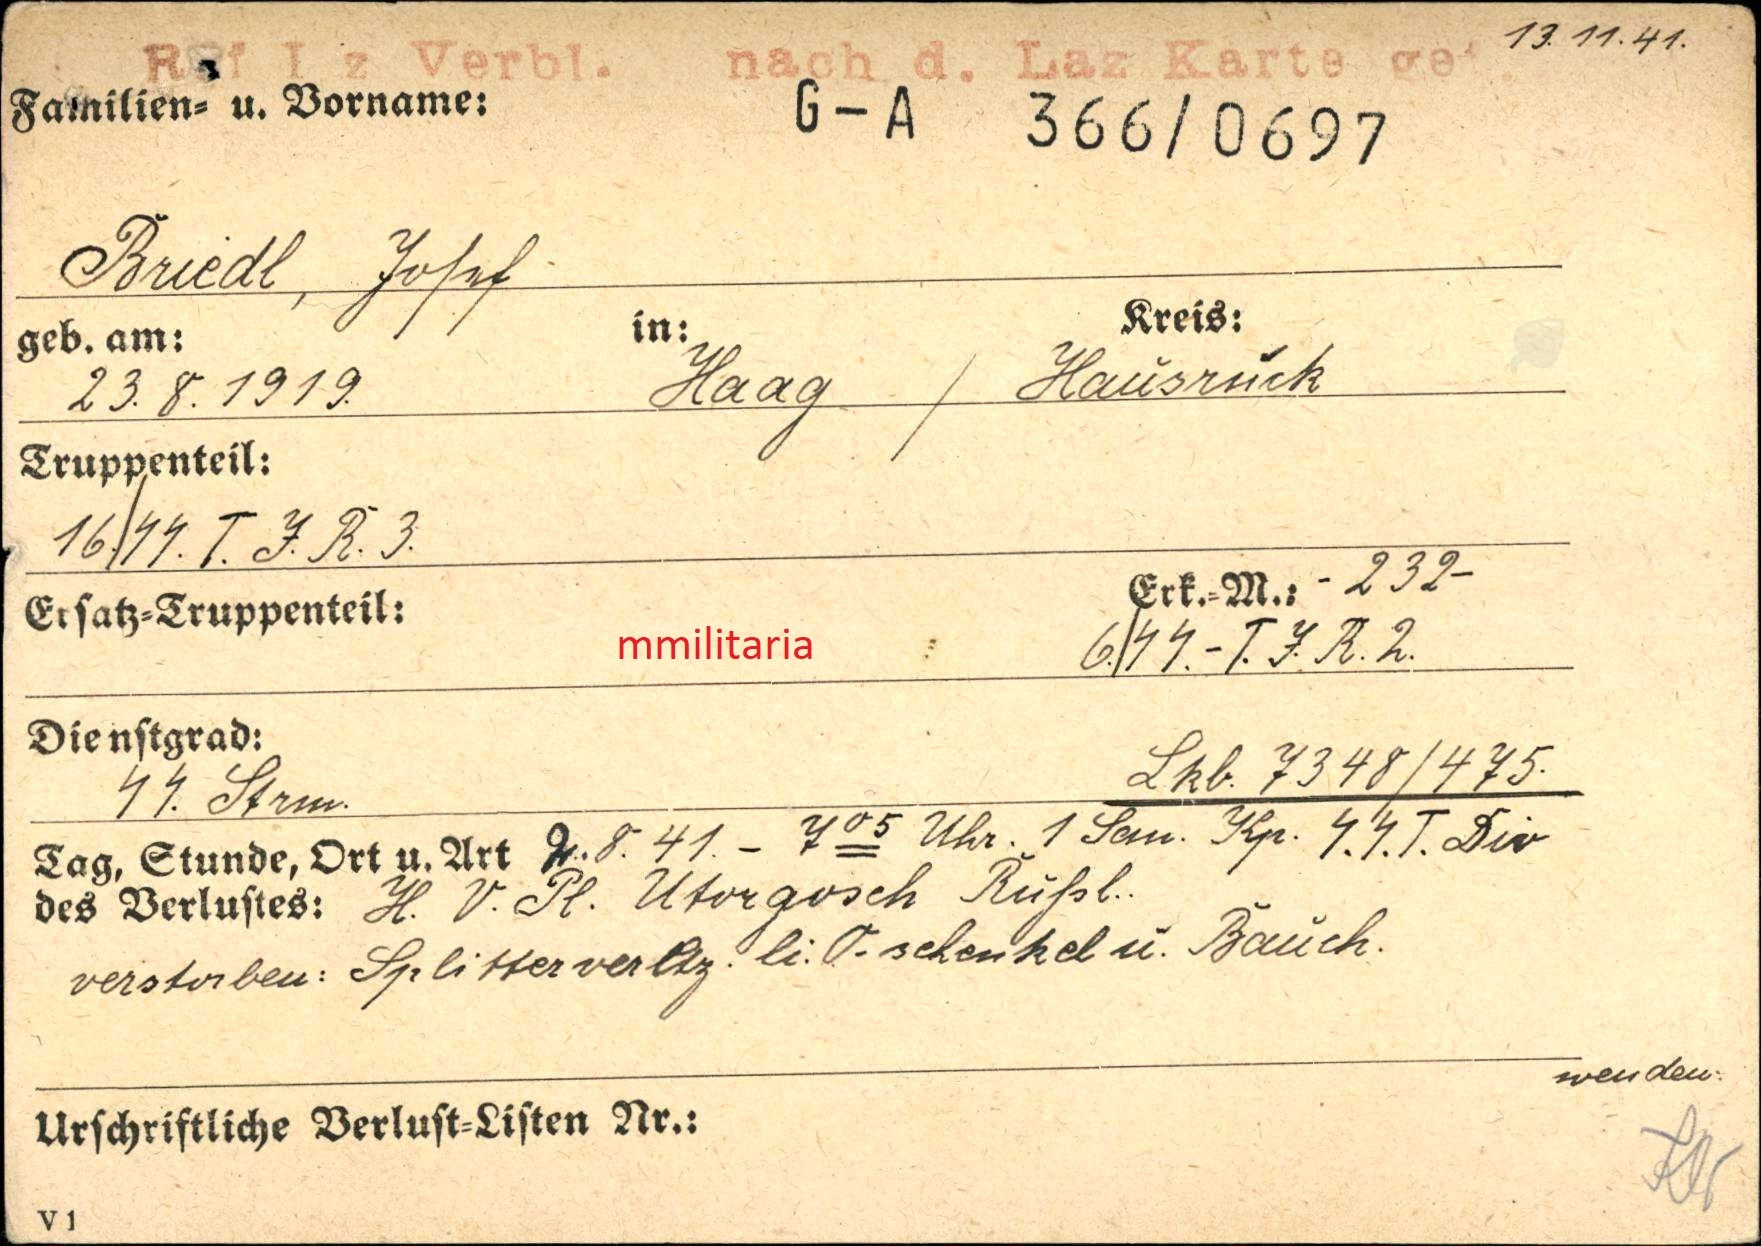 13. 11. 41.
Ref I z Verbl. nach d. Laz Karte
Familien- u. Vorname:
G-A 366/0697
Briedl, Josef
geb. am: in: Kreis:
23. 8. 1919. Haag / Hausruck
Truppenteil:
16./44. T. J. R. 3.
Erk.-M.: - 232-
Ersatz-Truppenteil:
mmilitaria
6./44.-T. J. R. 2.
Dienstgrad:
44. Strm.
Lkb. 7348/475.
Tag, Stunde, Ort u. Art 2. 8. 41. - 7 05 Uhr. 1 San. Kp. 44.T. Div
des Verlustes: H. V. Pl. Utorgosch Rußl..
verstorben: Splitterverltz. li. O.-schenkel u. Bauch.
wenden.
Urschriftliche Verlust-Listen Nr.:
V 1